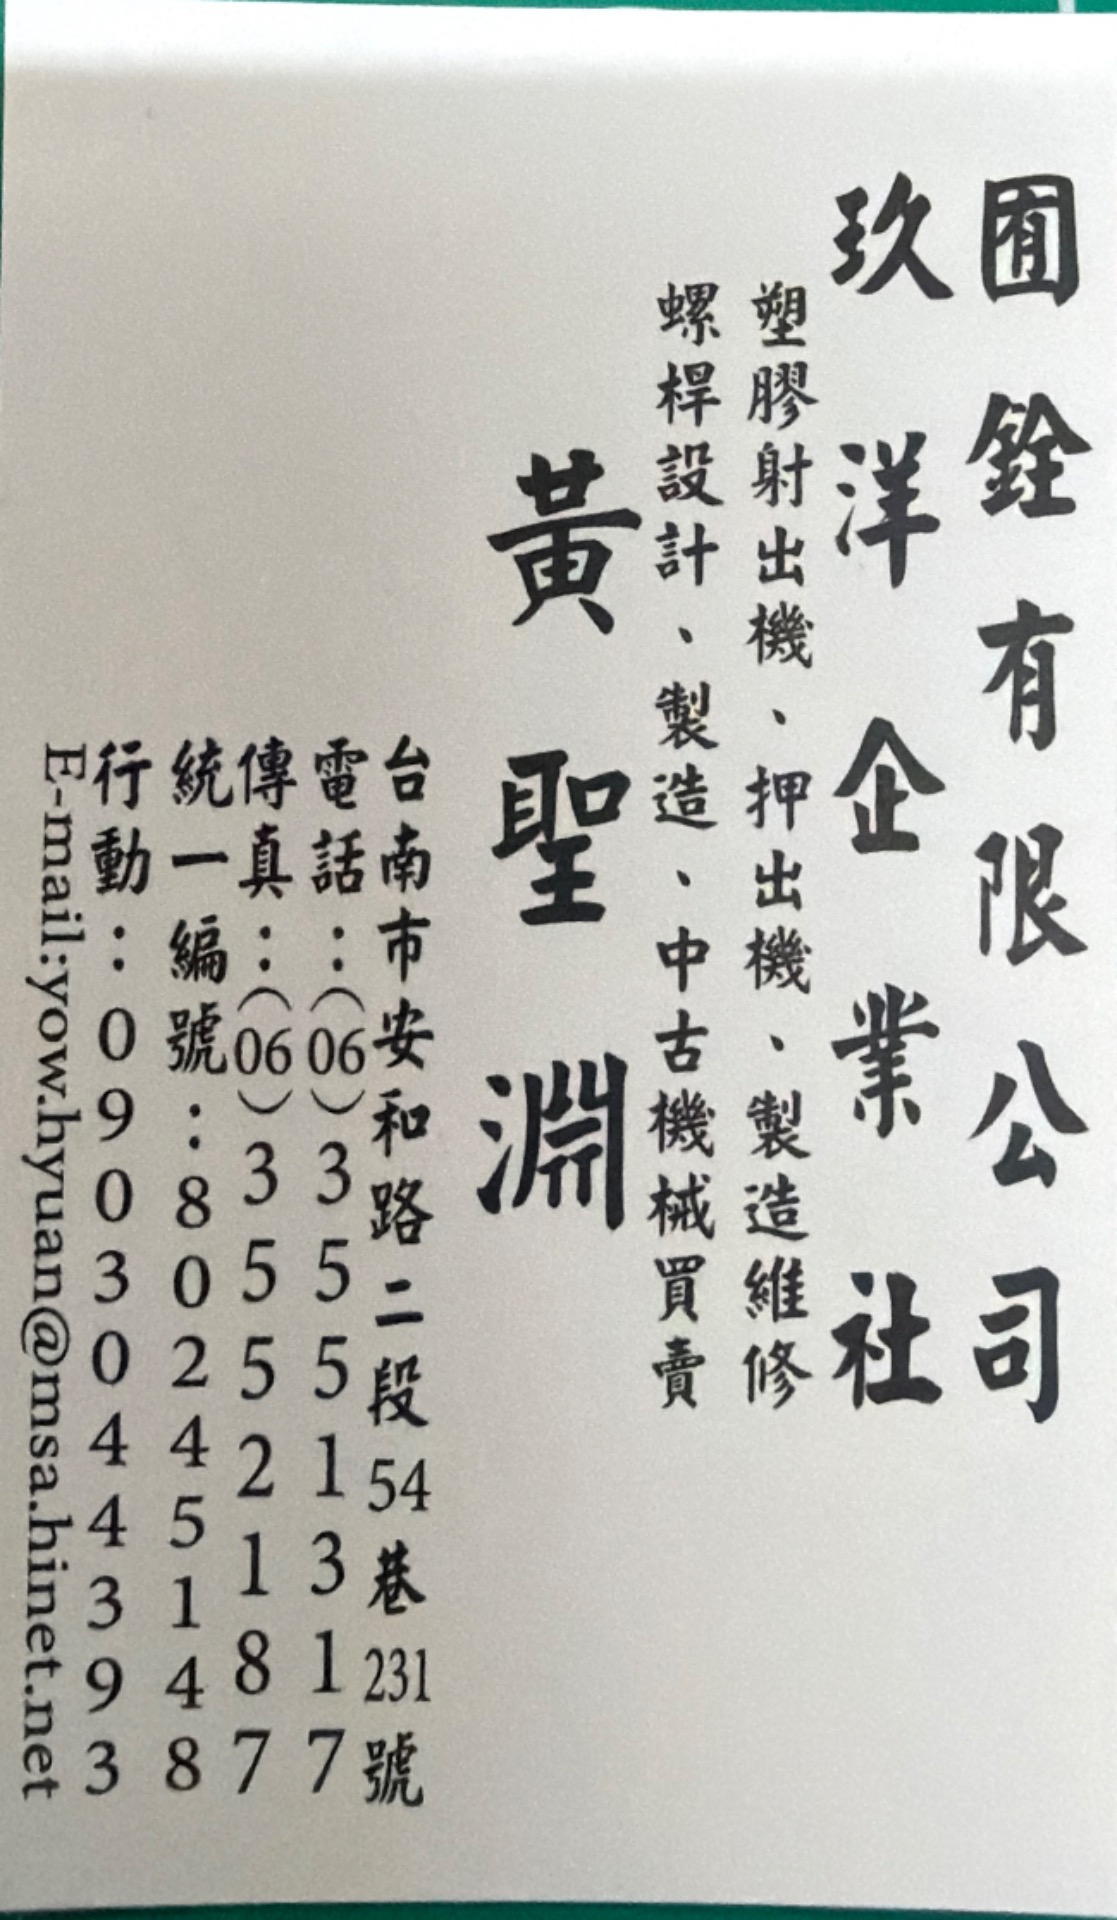 囿銓有限公司
玖洋企業社
塑膠射出機、押出機、製造維修
螺桿設計、製造、中古機械買賣
黃聖淵
台南市安和路二段54巷231號
電話：(06)3551317
傳真：(06)3552187
統一編號：80245148
行動：0903044393
E-mail:yow.hyuan@msa.hinet.net